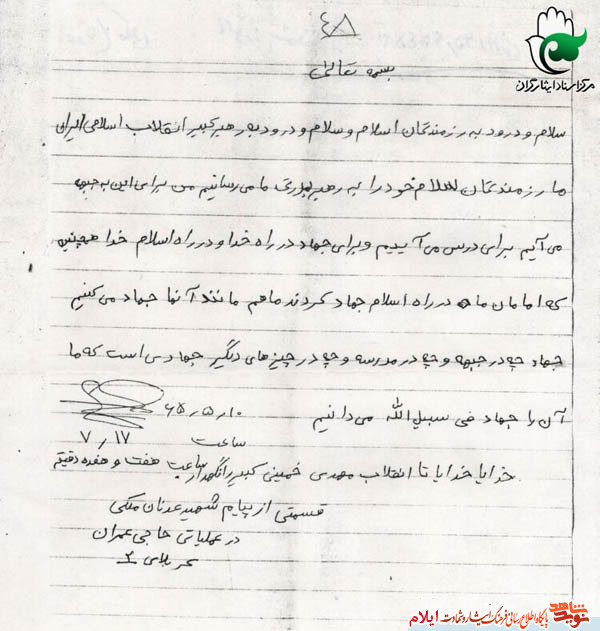 ۴۸
مرکز اسناد ایثارگران
بسمه تعالی
سلام و درود به رزمندگان اسلام و سلام و درود به رهبر کبیر انقلاب اسلامی ایران
ما رزمندگان سلام خود را به رهبر ما می رسانیم من برای این به جبهه
می آیم برای درس می آییم و برای جهاد در راه خدا و در راه اسلام خدا همچنین
که امامان ما در راه اسلام جهاد کردند ما هم مانند آنها جهاد می کنیم
جهاد چه در جبهه و چه در مدرسه و چه در چیز های دیگر جهادی است که ما
آن را جهاد فی سبیل الله می دانیم
۶۵٫۵٫۱۰
ساعت ۷٫۱۷
خدایا خدایا تا انقلاب مهدی خمینی کبیر را نگهدار ساعت هفت و هفده دقیقه
قسمتی از پیام شهید عدنان ملکی
در عملیاتی حاجی عمران
کربلای ۲
نوید شاهد پایگاه اطلاع رسانی فرهنگ ایثار و شهادت ایلام